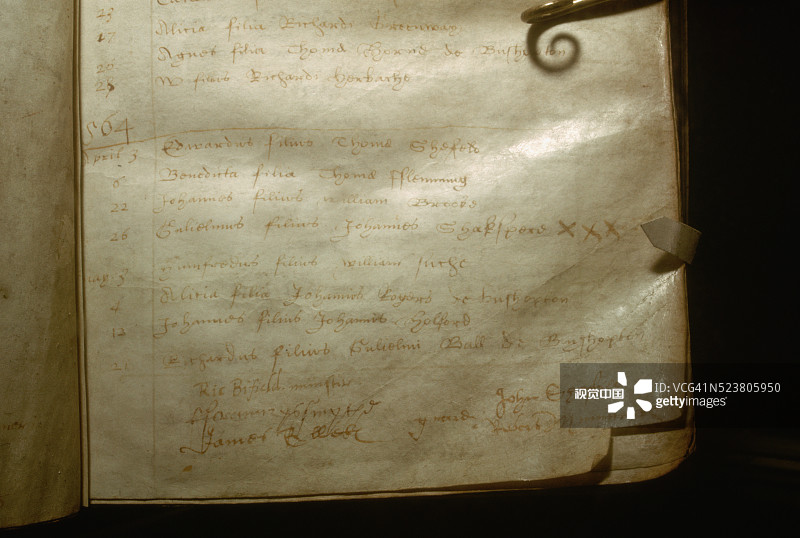 23
17 Alicia filia Richardi Greenway
20 Agnes filia Thomæ Horne de Bushopton
28 W filius Richardi Herbache
564
April 3 Edwardus filius Thomæ Shefeld
6 Benedicta filia Thomæ fflemming
22 Johannes filius William Brooke
26 Gulielmus filius Johannes Shakspere XXX
may 3 Humfredus filius william
4 Alicia filia Johannis Rogers de bushopton
13 Johannes filius Johannis Holford
21 Richardus filius Gulielmi Ball de Bushopton
Ric Bifield minister
John
James
视觉中国
ID: VCG41N523805950
gettyimages